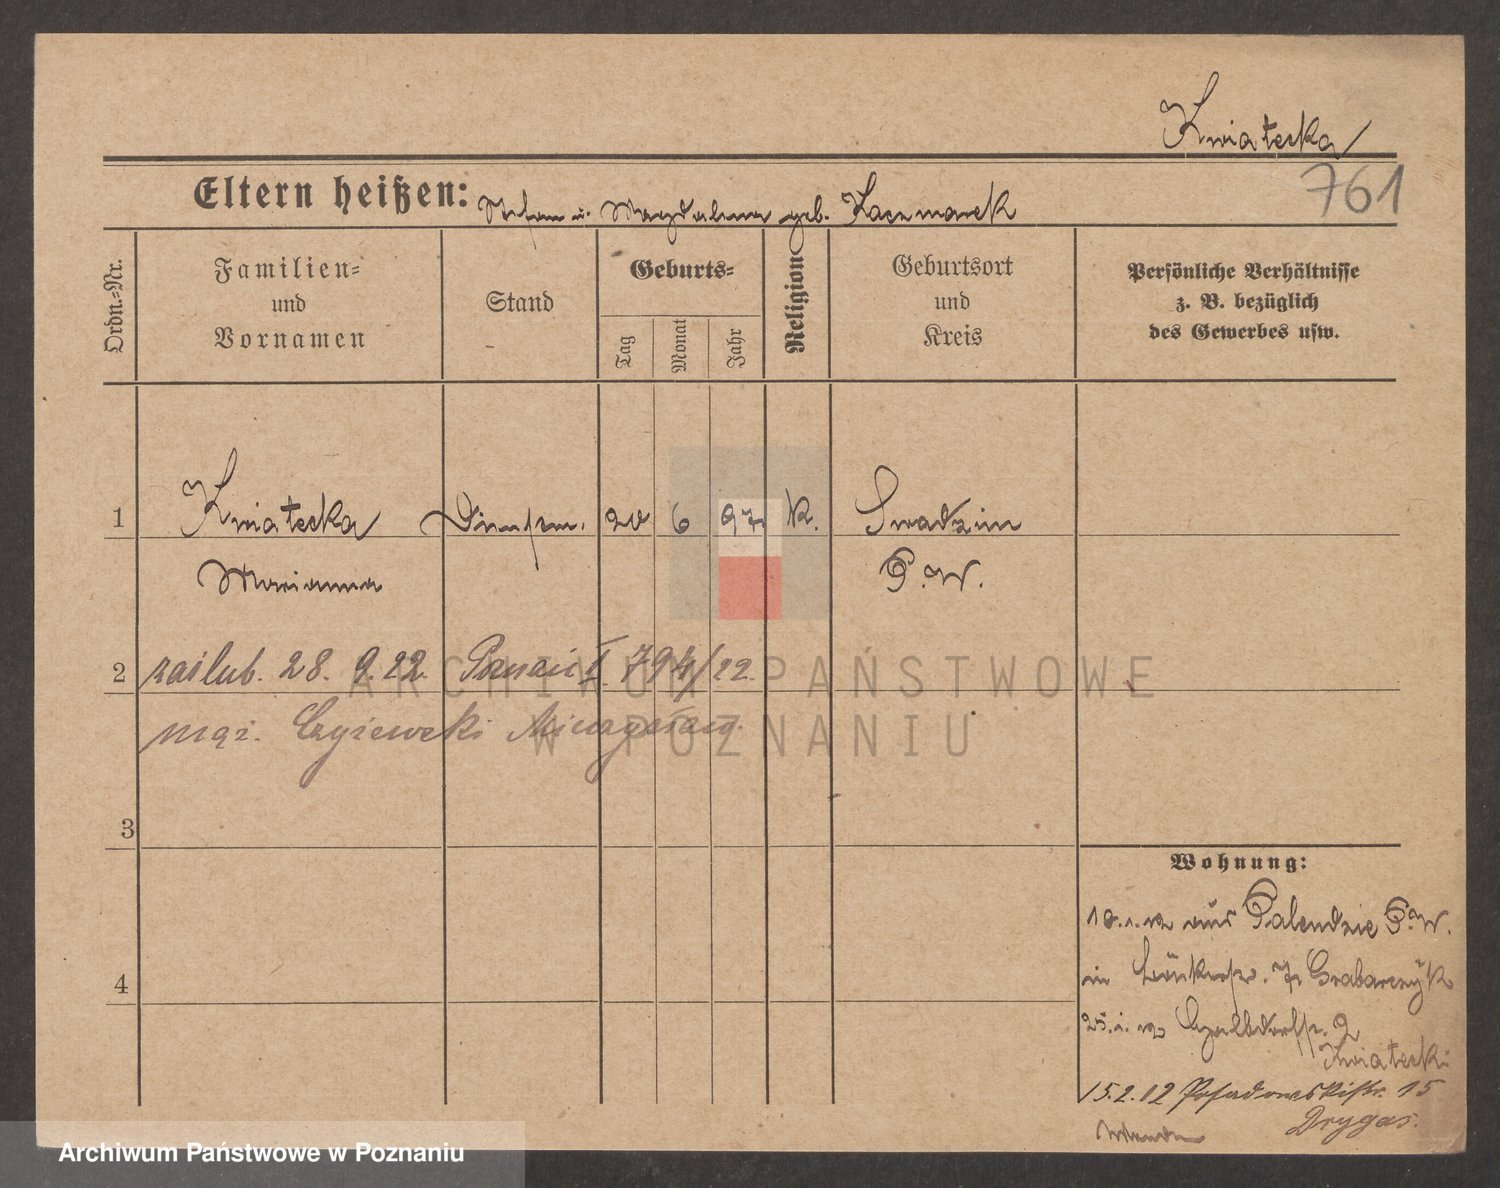 Kwiatecka
761
Eltern heißen: Stefan u. Magdalena geb. Kaczmarek
Ordn.-Nr.
Familien-
und
Vornamen
Stand
Geburts-
Tag
Monat
Jahr
Religion
Geburtsort
und
Kreis
Persönliche Verhältnisse
z. B. bezüglich
des Gewerbes usw.
1 Kwiatecka 20 6 97 k. Swadzim
Marianna P.W.
2 zaślub. 28. 9. 22. Poznań I. 794/22.
mąż. Czyżewski
3
4
Wohnung:
10.1.12 aus Palendzie P.W.
in 7 Grabarczyk
25.1.12 2
Kwiatecki
15.2.12 Posadowskistr. 15
Drygas.
ARCHIWUM PAŃSTWOWE
W POZNANIU
Archiwum Państwowe w Poznaniu